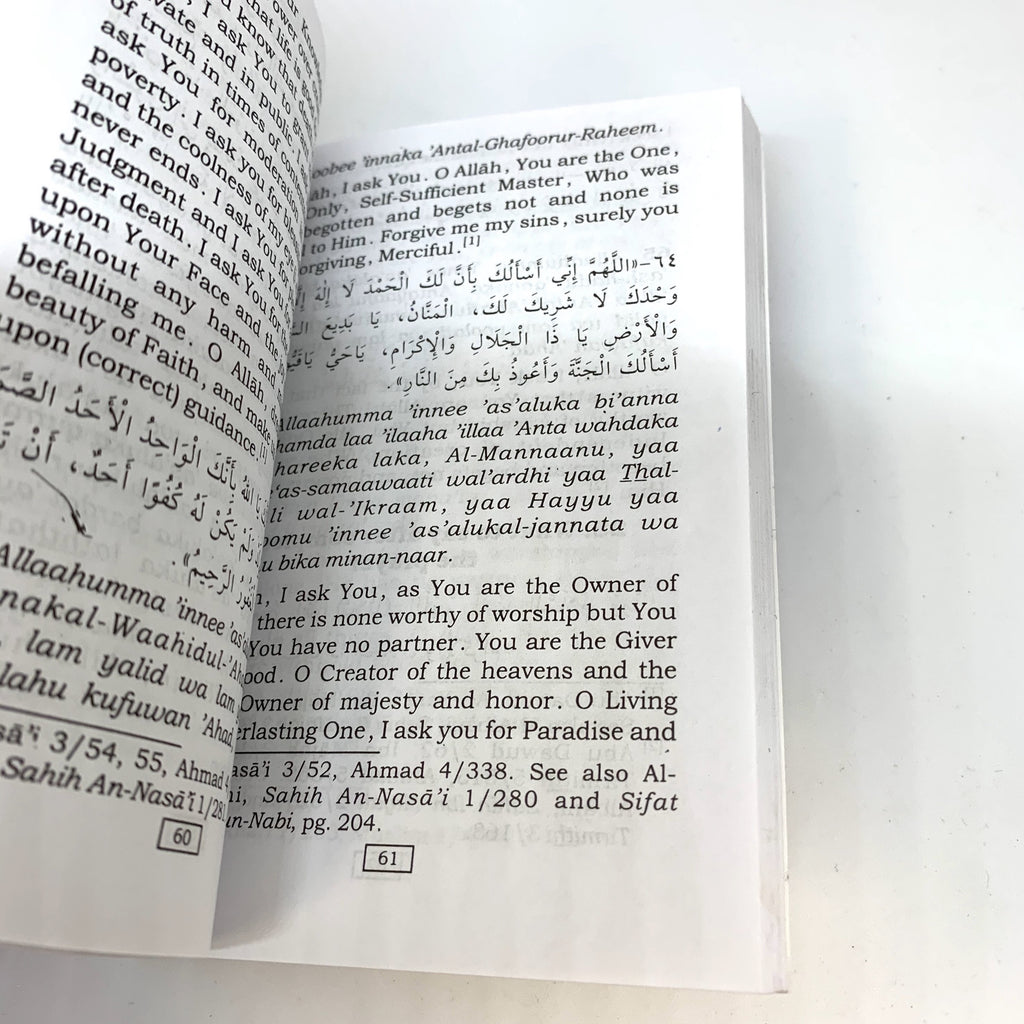 ower over
that life is good
know that death
, I ask You to
vate and in public. I
of truth in times of
ask You for moderation
poverty. I ask you for
and the coolness of my eye
never ends. I ask You for
Judgment and I ask You
after death. I ask You for
upon Your Face and the
without any harm and
befalling me. O Allāh,
beauty of Faith, and make
upon (correct) guidance.[1]
يَا اللهُ بِأَنَّكَ الْوَاحِدُ الْأَحَدُ الصَّمَ
وَلَمْ يَكُنْ لَهُ كُفُوًا أَحَدٌ، أَنْ
الرَّحِيمُ».
Allaahumma 'innee 'as'
nakal-Waahidul-'Ah
, lam yalid wa lam
lahu kufuwan 'Ahad
asā'i 3/54, 55, Ahmad 4
Sahih An-Nasā'i 1/28
60
oobee 'innaka 'Antal-Ghafoorur-Raheem.
āh, I ask You. O Allāh, You are the One,
Only, Self-Sufficient Master, Who was
begotten and begets not and none is
l to Him. Forgive me my sins, surely you
orgiving, Merciful.[1]
٦٤-«اللَّهُمَّ إِنِّي أَسْأَلُكَ بِأَنَّ لَكَ الْحَمْدَ لَا إِلَهَ
وَحْدَكَ لَا شَرِيكَ لَكَ، الْمَنَّانُ، يَا بَدِيعَ
وَالْأَرْضِ يَا ذَا الْجَلَالِ وَالْإِكْرَامِ، يَاحَيُّ يَاقَيُّ
أَسْأَلُكَ الْجَنَّةَ وَأَعُوذُ بِكَ مِنَ النَّارِ».
Allaahumma 'innee 'as'aluka bi'anna
hamda laa 'ilaaha 'illaa 'Anta wahdaka
hareeka laka, Al-Mannaanu, yaa
'as-samaawaati wal'ardhi yaa Thal-
li wal-'Ikraam, yaa Hayyu yaa
oomu 'innee 'as'alukal-jannata wa
u bika minan-naar.
h, I ask You, as You are the Owner of
there is none worthy of worship but You
You have no partner. You are the Giver
ood. O Creator of the heavens and the
Owner of majesty and honor. O Living
erlasting One, I ask you for Paradise and
asā'i 3/52, Ahmad 4/338. See also Al-
ni, Sahih An-Nasā'i 1/280 and Sifat
n-Nabi, pg. 204.
61